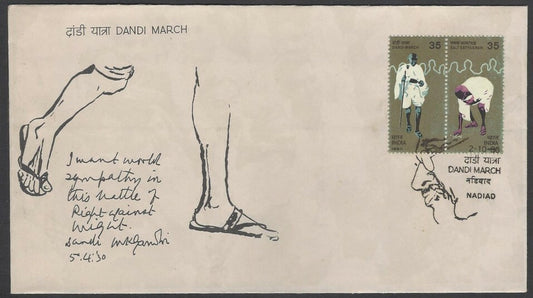 दांडी यात्रा DANDI MARCH
दांडी यात्रा
DANDI-MARCH
35
नमक सत्याग्रह
SALT SATYAGRAHA
35
भारत
INDIA
भारत
INDIA
2-10-80
दांडी यात्रा
DANDI MARCH
नडियाद
NADIAD
I want world
sympathy in
this battle of
Right against
might.
Dandi MKGandhi
5.4.30